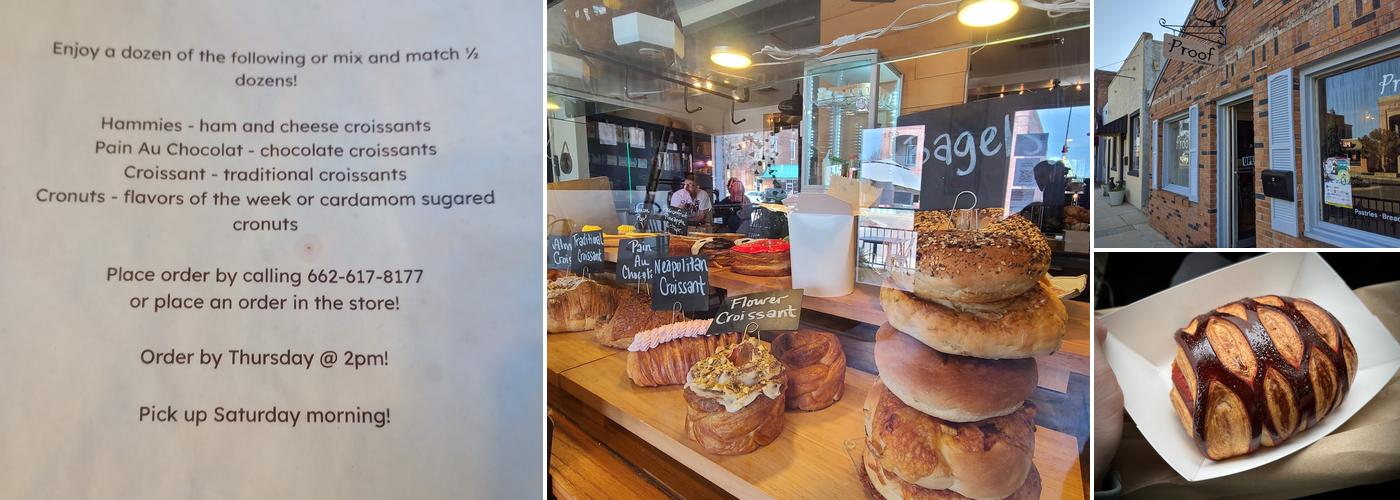 Enjoy a dozen of the following or mix and match ½
dozens!
Hammies - ham and cheese croissants
Pain Au Chocolat - chocolate croissants
Croissant - traditional croissants
Cronuts - flavors of the week or cardamom sugared
cronuts
Place order by calling 662-617-8177
or place an order in the store!
Order by Thursday @ 2pm!
Pick up Saturday morning!
Bagels
Traditional
Croissant
Pain
Au
Neapolitan
Croissant
Flower
Croissant
Proof
Proof
Pastries · Bread